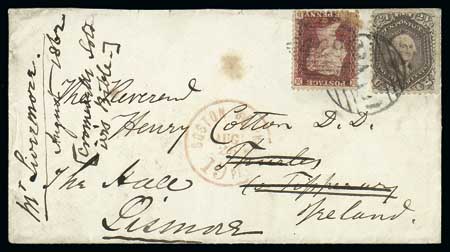 The Reverend
Henry Cotton D. D.
Thurles
Co Tipperary
The Hall
Lismore
Ireland.
Mr Livermore
August 1862
Cromwell's Sol
BOSTON
POSTAGE